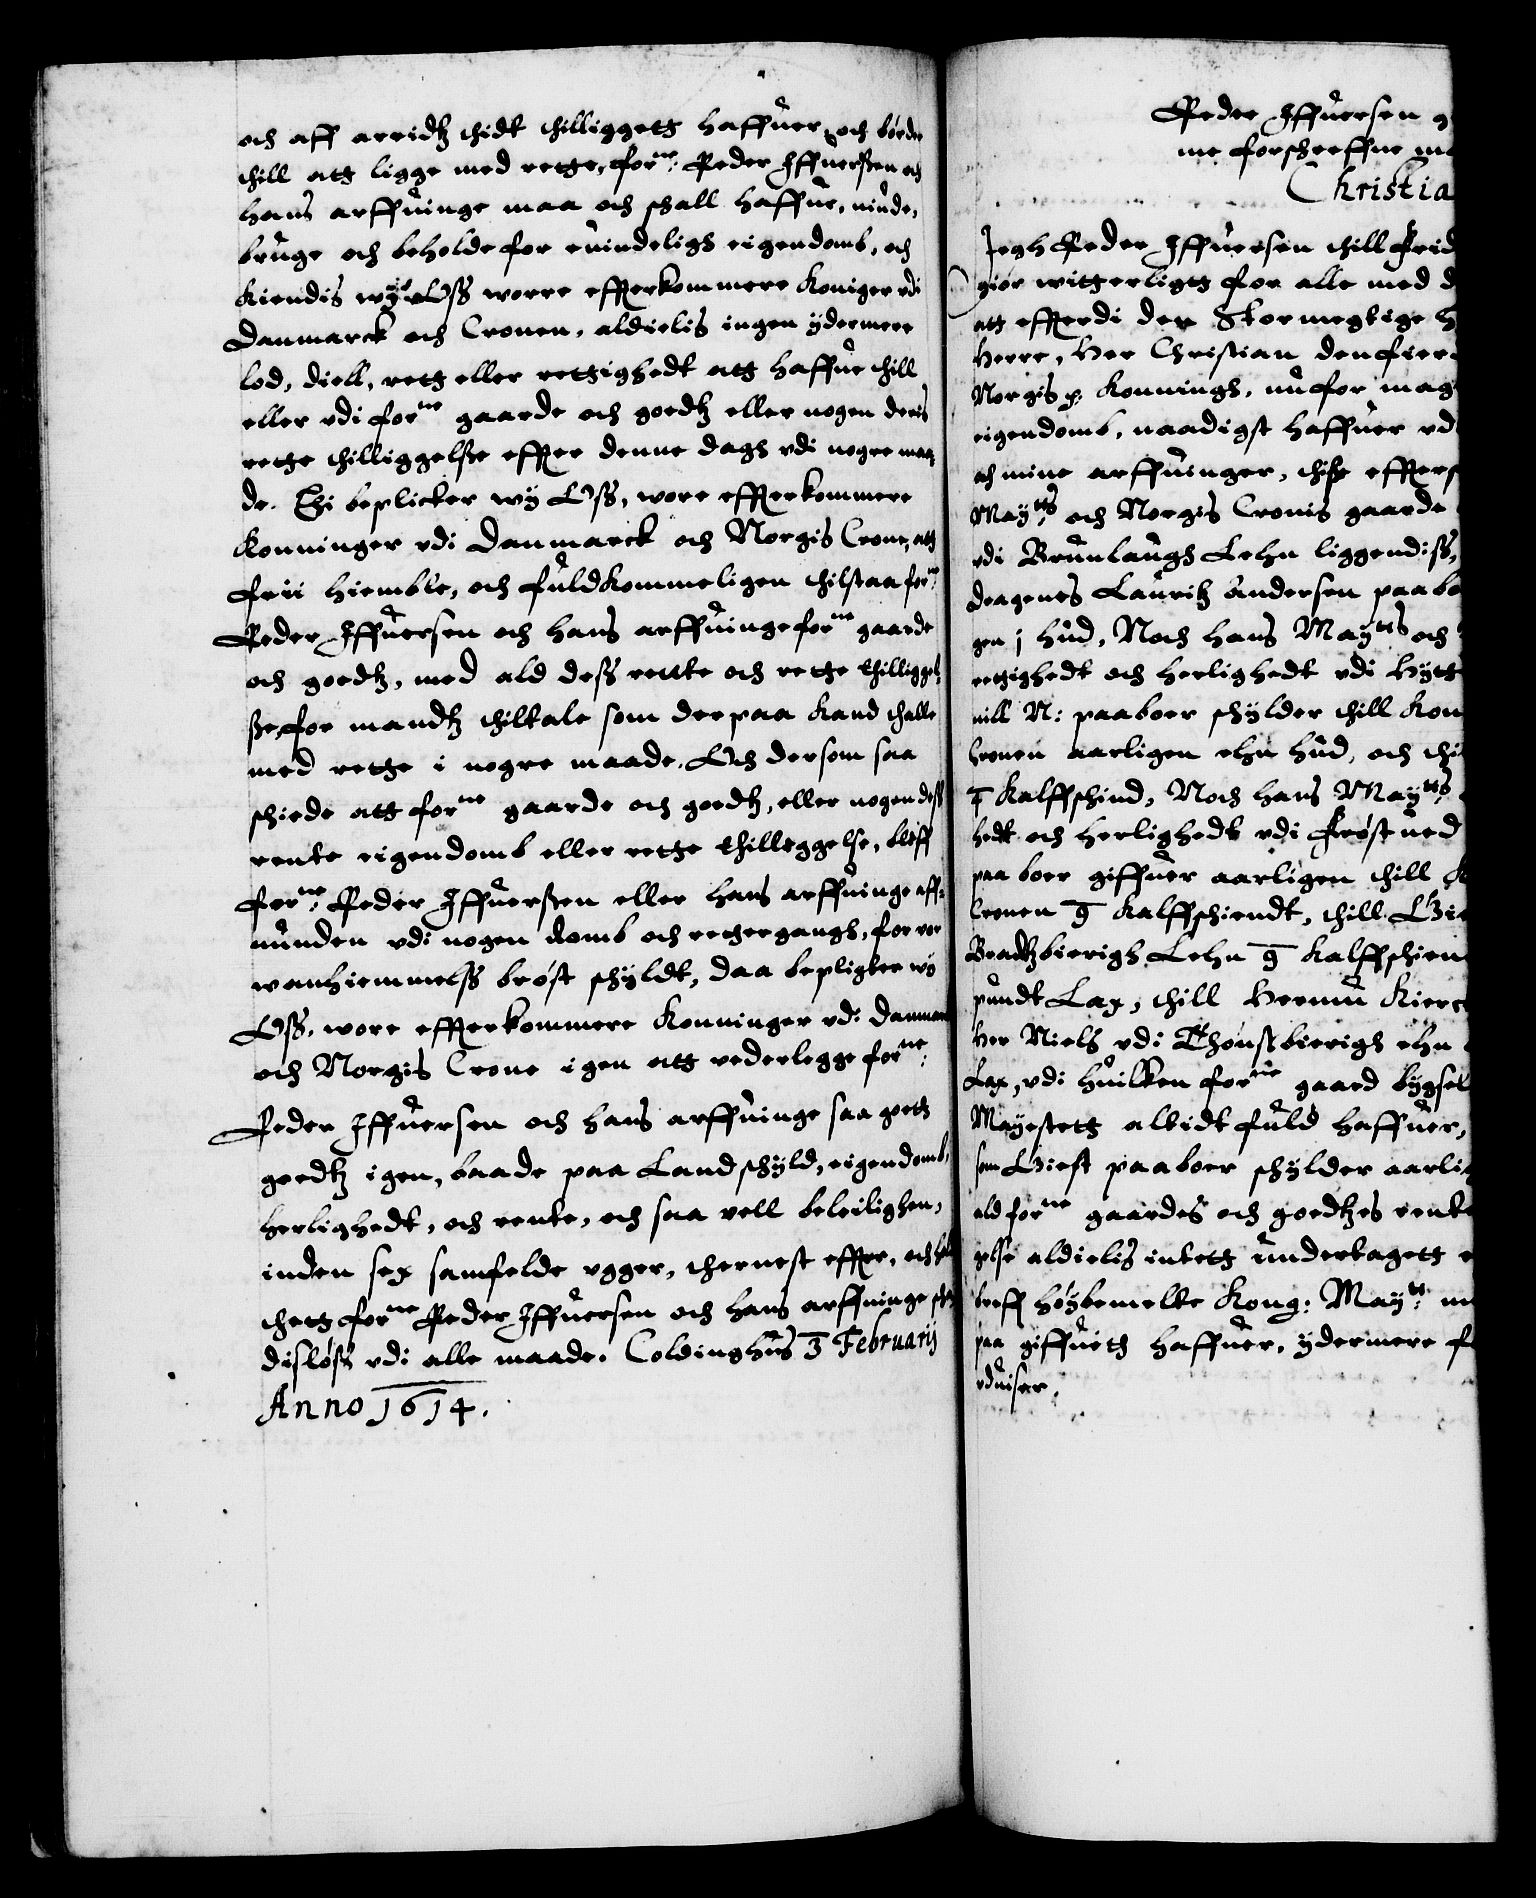 och aff arridtz thidt thilliggett haffuer och börde
thill att ligge med rette, forne: Peder Iffuerßen och
hans arffuinge maa och schall haffue, niude,
bruge och beholde for euindeligh eigendomb, och
kiendis wy Oß worre effterkommere Koniger vdi
Danmarck och Cronen, aldielis ingen ydermere
lod, diell, rett eller rettighedt att haffue thill
eller vdi forne gaarde och goedtz eller nogen deris
rette thilliggelße effter denne dagh vdi nogre maa
de. Thi beplicter wy Oß, wore effterkommere
Konninger vdi Danmarck och Norgis Crone, att
frii hiemble, och fuldkommeligen thilstaa forne:
Peder Iffuersen och hans arffuinge forne gaarde
och goedtz, med ald deß rentte och rette thilliggel
ße, for mandtz thiltale som der paa kand thalle
med rette i nogre maade. Och dersom saa
schiede att forne gaarde och goedtz, eller nogen deß
rente eigendomb eller rette thilleggelse, bleff
forne: Peder Iffuerßen eller hans arffuinge aff
uunden vdi nogen domb och rettergangh, for vor
wanhiemmelß bröst schyldt, daa bepligter wy
Oß, wore effterkommere Konninger vdi Danmarck
och Norgis Crone igen att vederlegge forne:
Peder Iffuersen och hans arffuinge saa gott
goedtz igen, baade paa Landschyld, eigendomb,
herlighedt, och rente, och saa vell beleilighen,
inden sex samfelde vgger, thernest effter, och hol
thett forne Peder Iffuersen och hans arffuinge scha
dislößs vdi alle maade. Coldinghus 3 Februarij
Anno 1614.
Peder Iffuersen
me forschreffne
Christia
Iegh Peder Iffuersen thill Frid
giör witterligtt for alle med d
att effterdi den Stormegtige H
Herre, Her Christian den fier
Norgis p. Konningh, nu for mag
eigendomb, naadigst haffuer vd
och mine arffuinger, thisse effters
Maytts och Norgis Cronis gaarde
vdi Brunlaugh Lehn liggendiß,
dragenes Lauritz Andersen paabo
gen j hud, Noch hans Maytts och
rettighedt och herlighedt vdi Hytt
uill N: paaboer schylder thill Kon
Cronen aarligen ehn hud, och thi
4 Kalffschind, Noch hans Maytts
hedt och herlighedt vdi Fröstued
paa boer giffuer aarligen thill K
Cronen 9 Kalffschiendt, thill Gi
Bradtzbierigh Lehn 9 Kalffschien
pundt Lax, thill Hermu Kierc
Her Niels vdi Thönsbierigh ehn
Lax, vdi huilken forne gaard bygsel
Mayestett altidt fuld haffuer,
som Giest paaboer schylder aarlig
ald forne gaardes och goedtzes rente
gelse aldielis intett undertagett
breff höybemelte Kong: Maytt: n
paa giffuitt haffuer, ydermere f
vduiser.